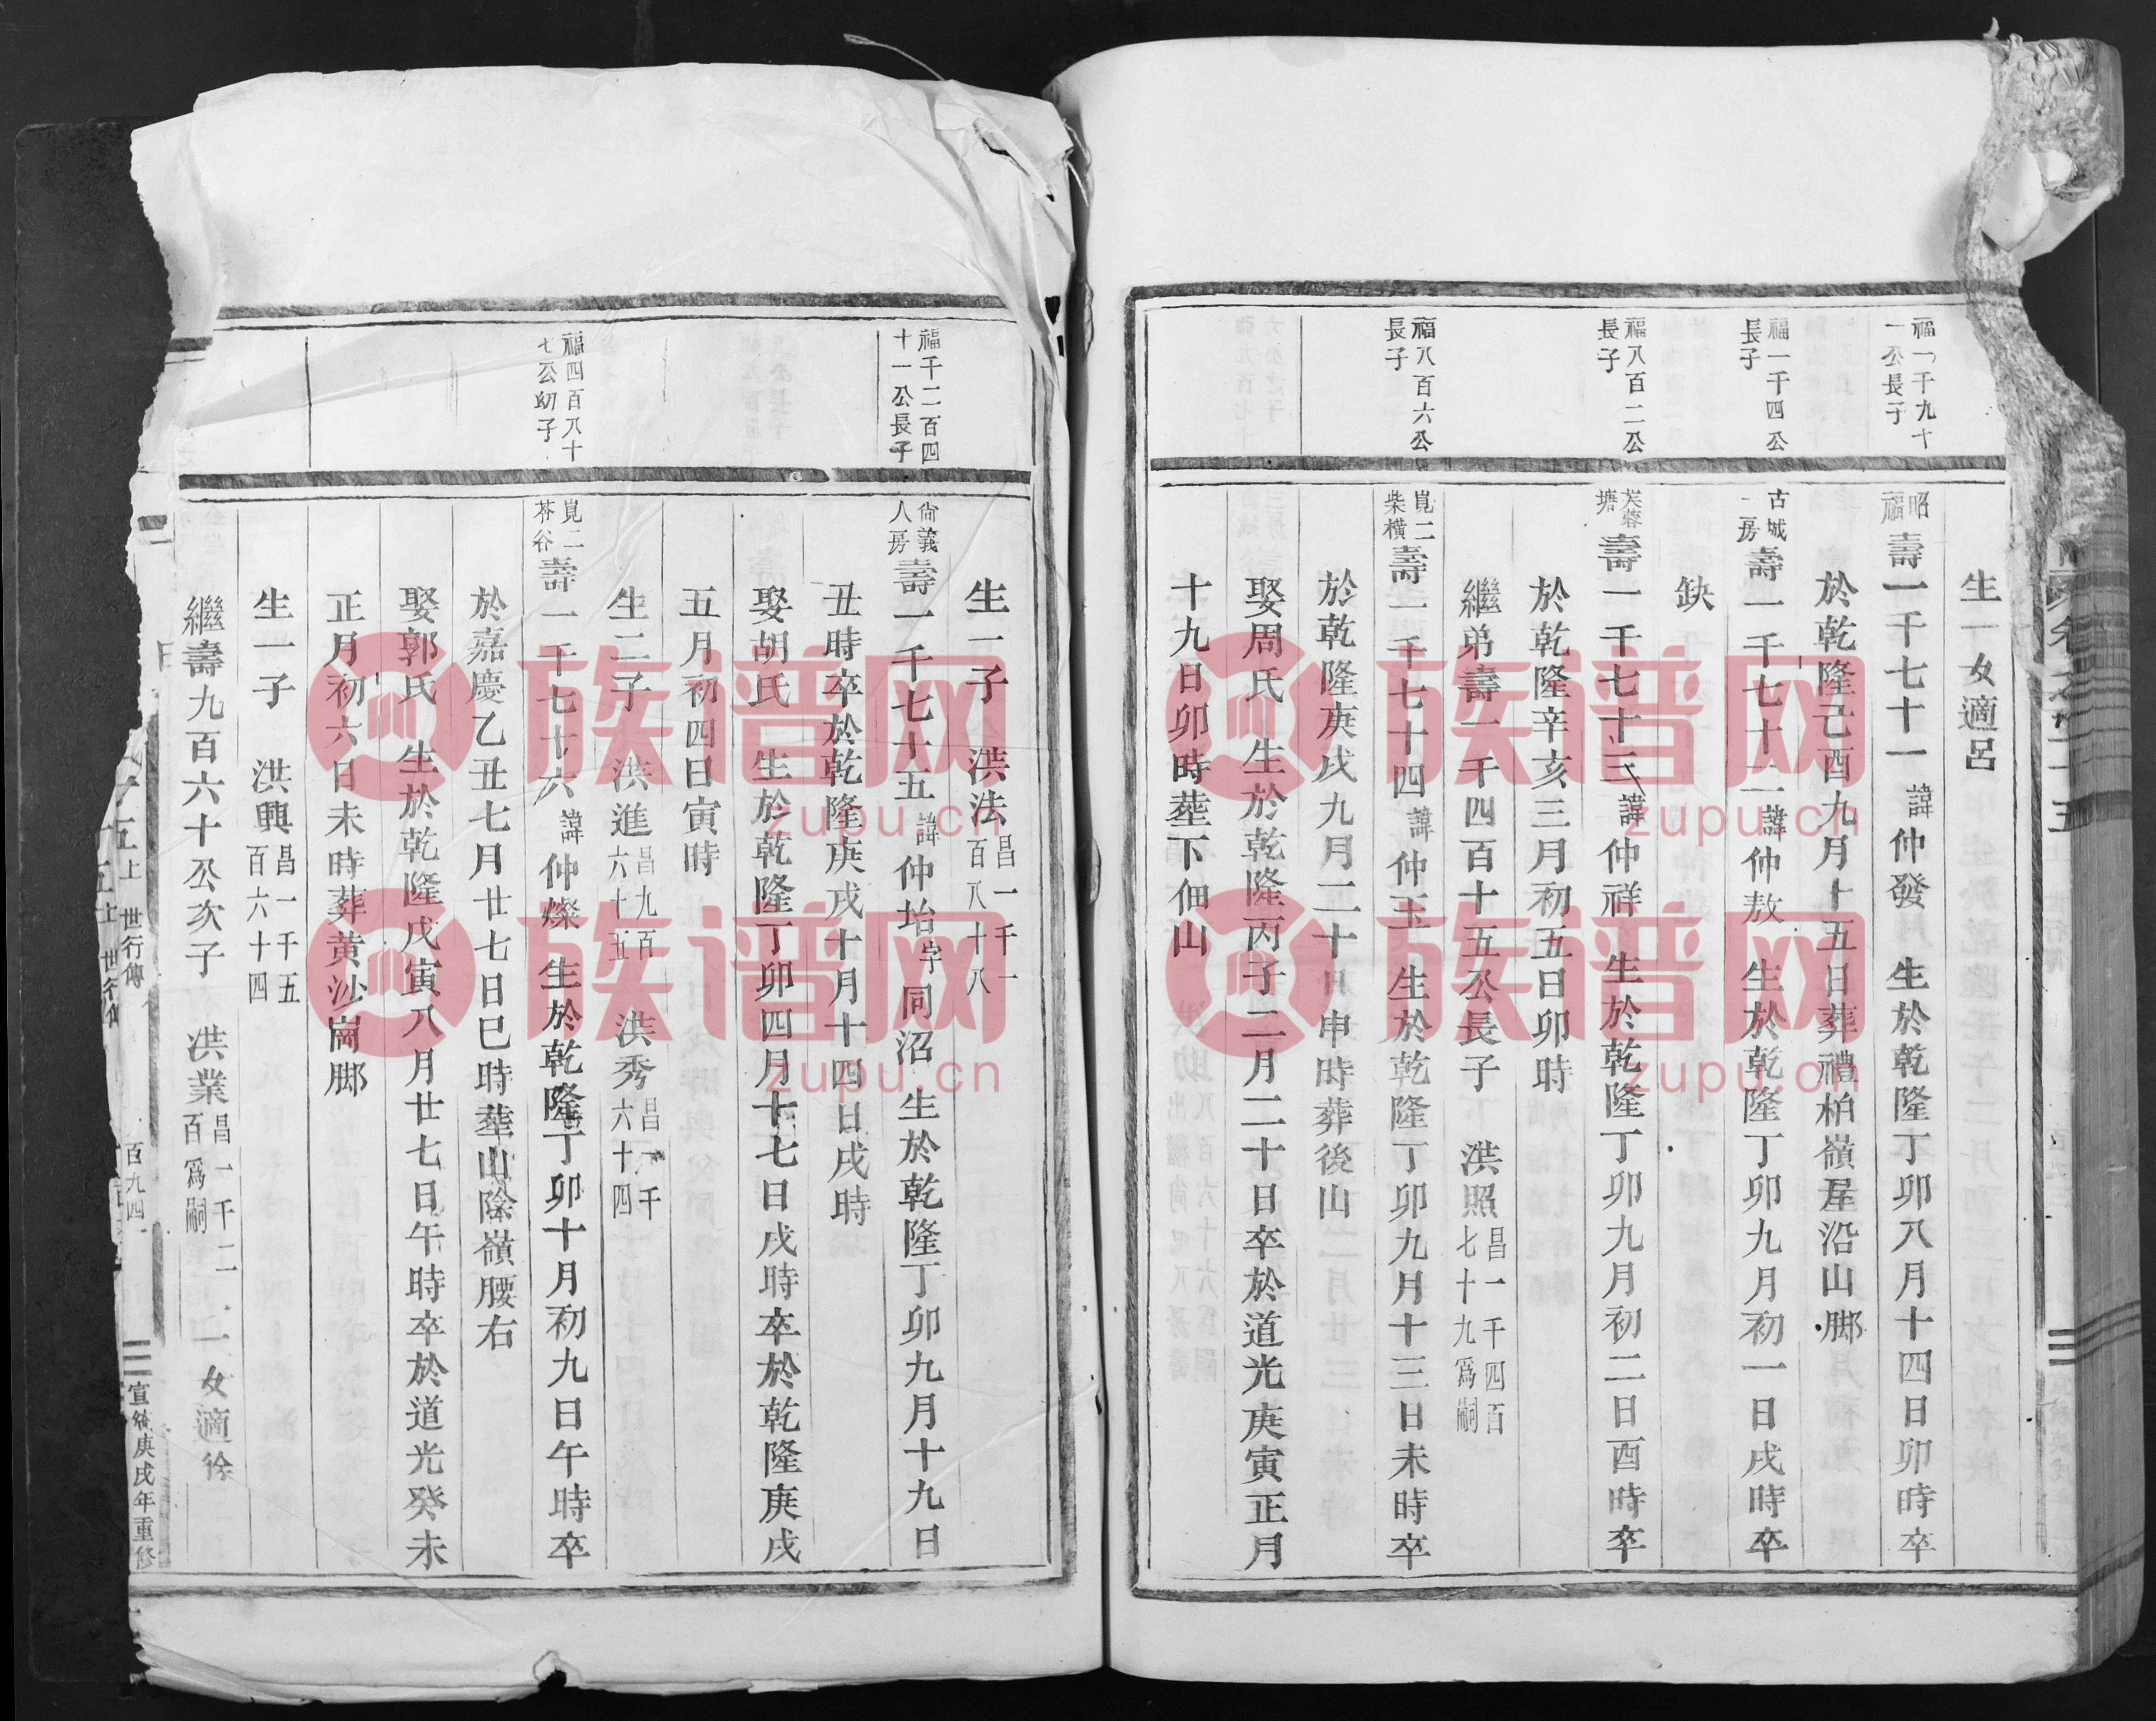 生一女適呂
福一千九十
一公長子
昭
福
壽一千七十一諱仲發 生於乾隆丁卯八月十四日卯時卒
於乾隆己酉九月十五日葬禮柏嶺屋沿山腳
福一千四公
長子
古城
一房
壽一千七十二諱仲敖 生於乾隆丁卯九月初一日戌時卒
缺
福八百二公
長子
芙蓉
塘
壽一千七十三諱仲祥 生於乾隆丁卯九月初二日酉時卒
於乾隆辛亥三月初五日卯時
繼弟壽一千四百十五公長子 洪照昌一千四百
七十九爲嗣
福八百六公
長子
崑二
柴橫
壽一千七十四諱仲玉 生於乾隆丁卯九月十三日未時卒
於乾隆庚戌九月二十日申時葬後山
娶周氏 生於乾隆丙子二月二十日卒於道光庚寅正月
十九日卯時塟下佃山
生一子 洪法昌一千一
百八十八
福千二百四
十一公長子
尙義
人房
壽一千七十五諱仲坮字同沼 生於乾隆丁卯九月十九日
丑時卒於乾隆庚戌十月十四日戌時
娶胡氏 生於乾隆丁卯四月十七日戌時卒於乾隆庚戌
五月初四日寅時
生二子 洪進昌九百
六十五
洪秀昌一千
六十四
福四百八十
七公幼子
崑二
茶谷
壽一千七十六諱仲燦 生於乾隆丁卯十月初九日午時卒
於嘉慶乙丑七月廿七日巳時塟山陰嶺腰右
娶郭氏 生於乾隆戊寅八月廿七日午時卒於道光癸未
正月初六日未時葬黄沙崗腳
生一子 洪興昌一千五
百六十四
繼壽九百六十公次子 洪業昌一千二
百爲嗣
一女適徐
世行傳
百九四
宣統庚戌年重修
族谱网
zupu.cn
族谱网
zupu.cn
族谱网
zupu.cn
族谱网
zupu.cn